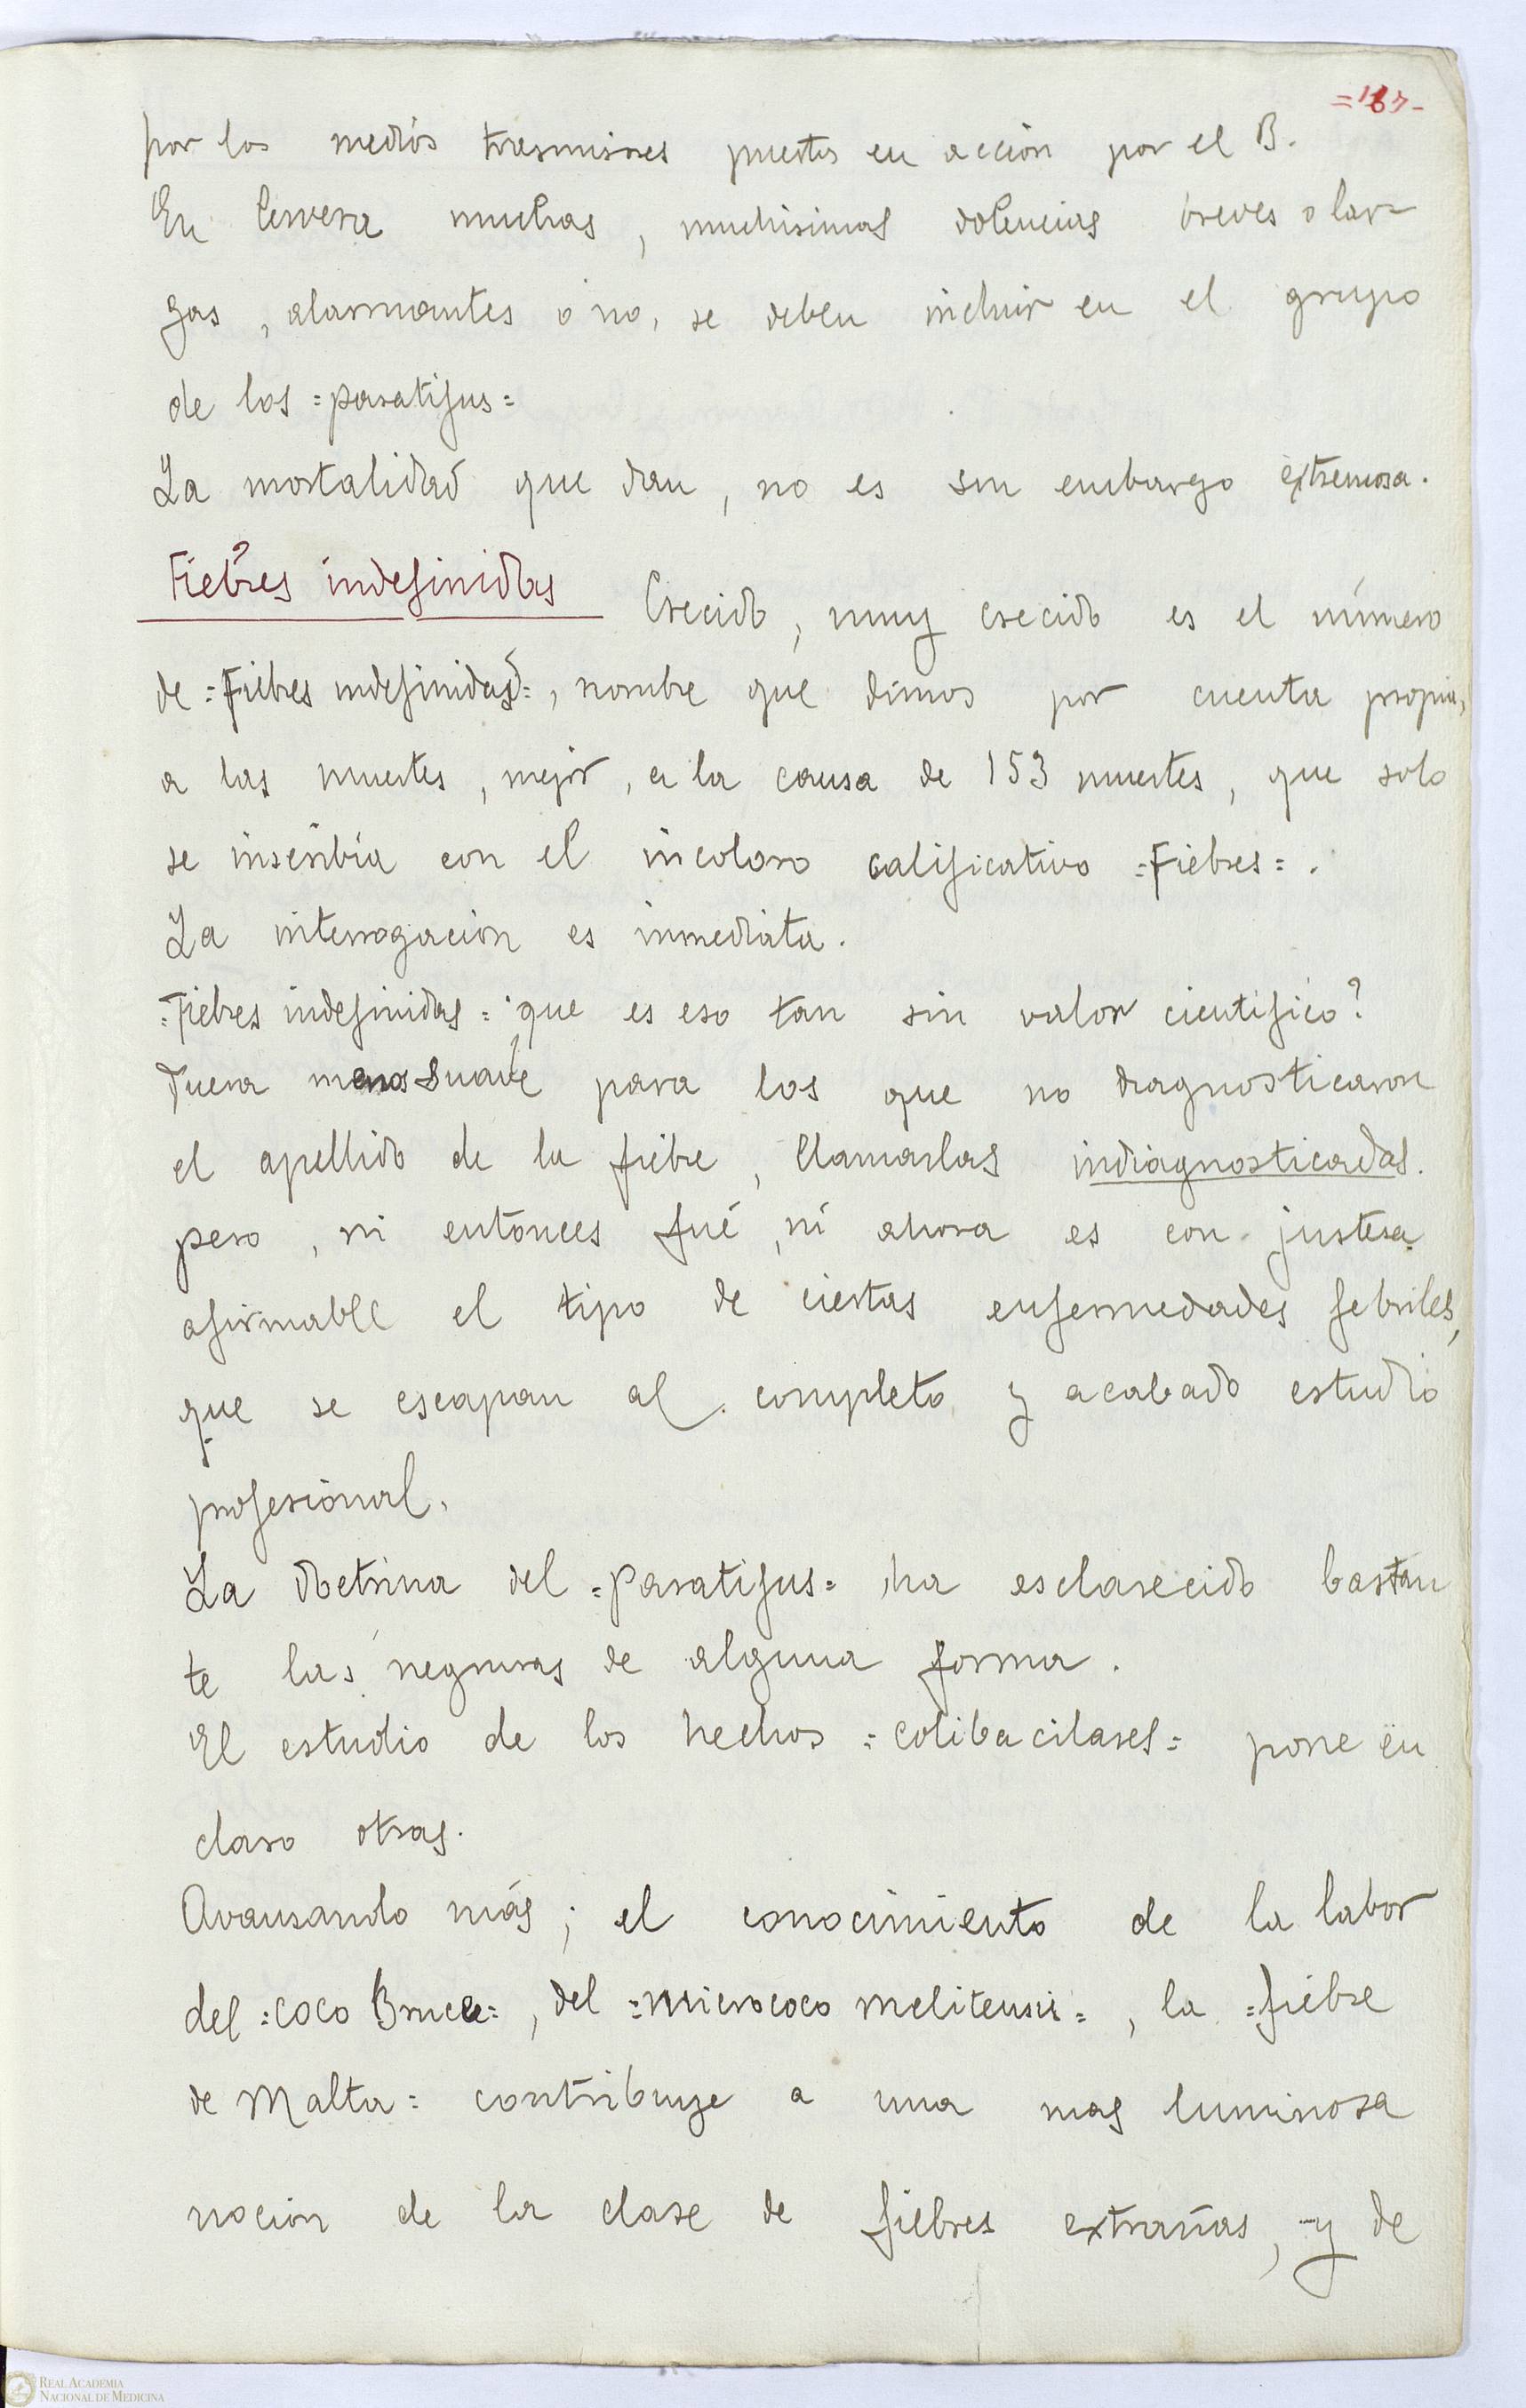 =187-
por los medios trasmisores puestos en acción por el B.
En Cervera muchas, muchisimas dolencias breves o lar-
gas, alarmantes o no, se deben incluir en el grupo
de los =paratifus=
La mortalidad que dan, no es sin embargo extremosa.
Fiebres indefinidas Crecido, muy crecido es el número
de =Fiebres indefinidas=, nombre que dimos por cuenta propia,
a las muertes, mejor, a la causa de 153 muertes, que solo
se inscribía con el incoloro calificativo =Fiebres=.
La interrogación es inmediata.
=Fiebres indefinidas= que es eso tan sin valor cientifico?
Fuera menos suave para los que no diagnosticaron
el apellido de la fiebre, llamarlas indiagnosticadas.
pero, ni entonces fué, ni ahora es con justesa
afirmable el tipo de ciertas enfermedades febriles,
que se escapan al completo y acabado estudio
profesional.
La doctrina del =paratifus= ha esclarecido bastan
te las negruras de alguna forma.
El estudio de los hechos =colibacilares= pone en
claro otras.
Avansando más; el conocimiento de la labor
del =coco Bruce=, del =micrococo melitensis=, la =fiebre
de Malta= contribuye a una mas luminosa
noción de la clase de fiebres extrañas, y de
REAL ACADEMIA
NACIONAL DE MEDICINA